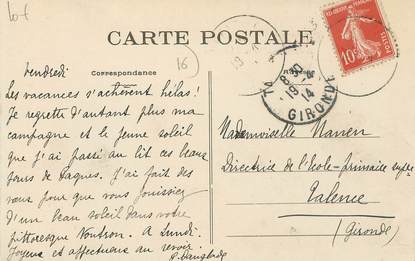 CARTE POSTALE
Correspondance
16
Vendredi
Les vacances s'achèvent hélas!
Je regrette d'autant plus ma
campagne et le jeune soleil
que j'ai passé au lit ces beaux
jours de Pâques. J'ai fait des
vœux pour que vous jouissiez
d'un beau soleil dans votre
pittoresque Nontron. A Lundi.
Joyeux et affectueux au revoir.
10c
POSTES
8 30
19 -4
14
GIRONDE
Mademoiselle
Directrice de l'Ecole primaire supre
Talence
(Gironde)